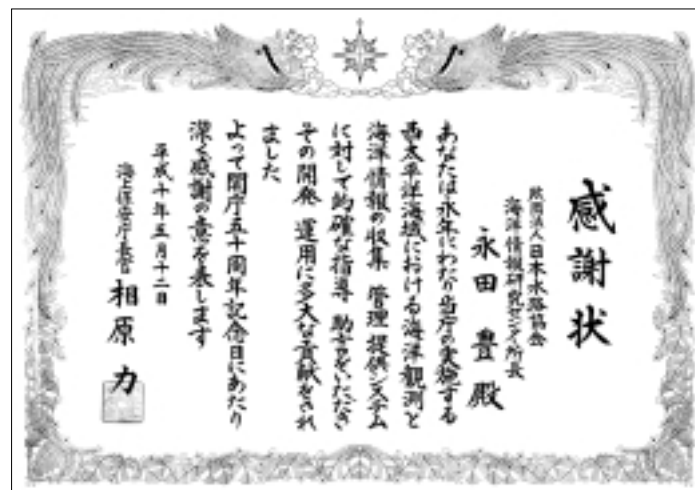 感謝状
財団法人日本水路協会
海洋情報研究センター所長
永田 豊 殿
あなたは永年にわたり当庁の実施する
西太平洋海域における海洋観測と
海洋情報の収集 管理 提供システム
に対して的確な指導 助言をいただき
その開発 運用に多大な貢献をされ
ました
よって開庁五十周年記念日にあたり
深く感謝の意を表します
平成十年五月十二日
海上保安庁長官 相原 力